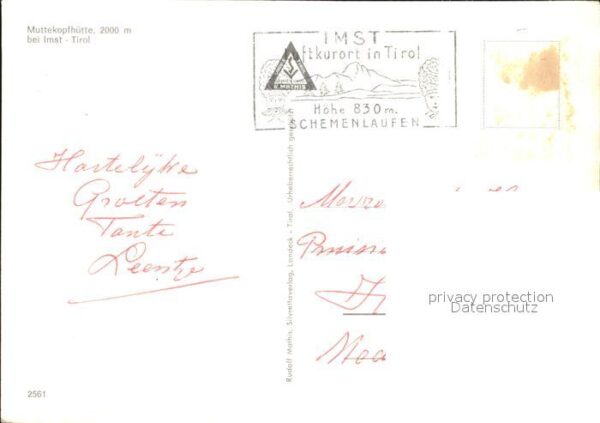 Muttekopfhütte, 2000 m
bei Imst - Tirol
IMST
ftkurort in Tirol
R. MATHIS
Höhe 830 m.
SCHEMENLAUFEN
Hartelijke
Groeten
Tante
Leentje
Rudolf Mathis, Silvrettaverlag, Landeck - Tirol. Urheberrechtlich
privacy protection
Datenschutz
2561